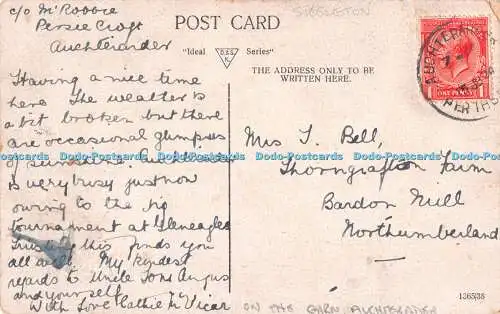 c/o McRobbie
Persie Croft
Auchterarder
POST CARD
"Ideal D&S K Series"
THE ADDRESS ONLY TO BE
WRITTEN HERE.
SIBBLETON
AUCHTERARDER
PERTHS
ONE PENNY
Having a nice time
here. The weather is
a bit broken but there
are occasional glimpses
of sunshine. Auchterarder
is very busy just now
owing to the big
tournament at Gleneagles
Trusting this finds you
all well. My kindest
regards to Uncle Tom, Angus
and yourself
With Love Cathie McVicar
Mrs T. Bell,
Thorngrafton Farm
Bardon Mill
Northumberland
ON THE EARN AUCHTERARDER
136535
Dodo-Postcards Dodo-Postcards Dodo-Postcards Dodo-Postcards